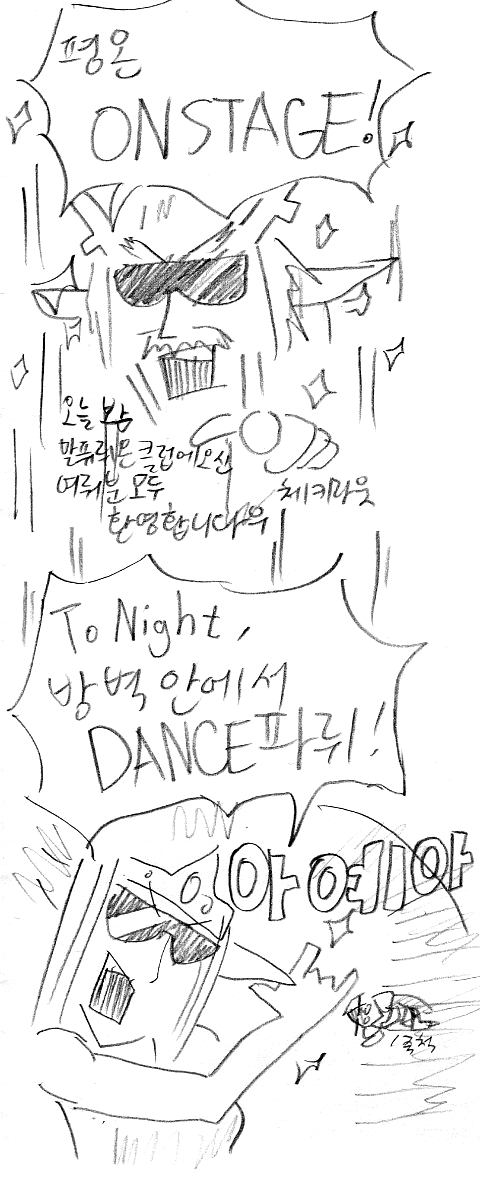 평온
ONSTAGE!
오늘 밤
말퓨리온 클럽에 오신
여뤄분 모두
환영합니다우
체키라웃
To Night,
방벽 안에서
DANCE파뤼!
아예이아